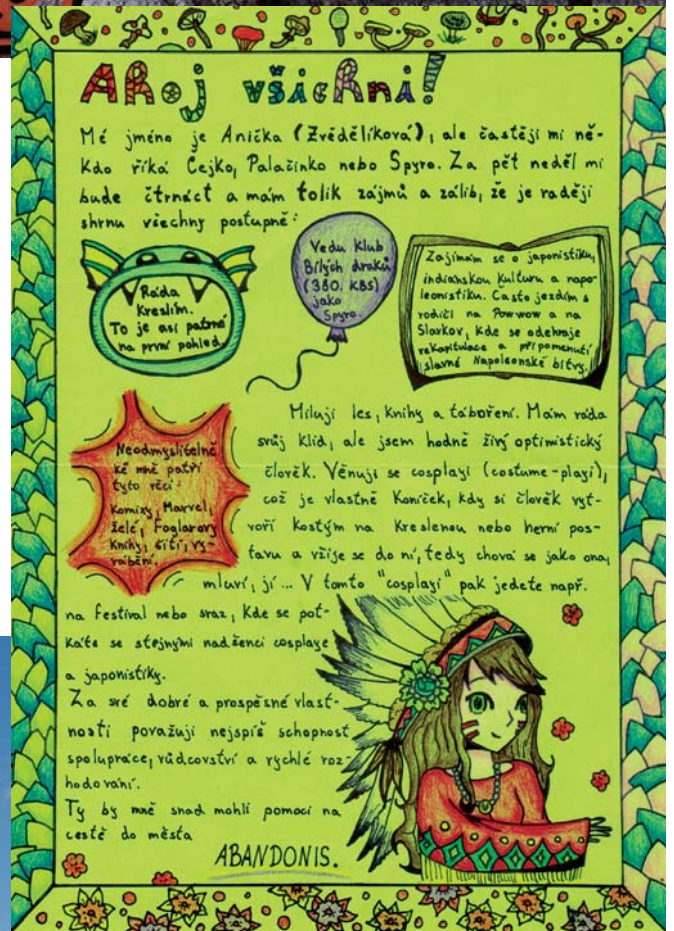 Ahoj všichni!
Mé jméno je Anička (Zvědělíková), ale častěji mi ně-
kdo říká Čejko, Palačinko nebo Spyro. Za pět neděl mi
bude čtrnáct a mám tolik zájmů a zálib, že je raději
shrnu všechny postupně:
Ráda
kreslím.
To je asi patrné
na první pohled.
Vedu klub
Bílých draků
(380. KBS)
jako
Spyro.
Zajímám se o japonistiku,
indiánskou kulturu a napo-
leonistiku. Často jezdím s
rodiči na Powwow a na
Slavkov, kde se odehraje
rekapitulace a připomenutí
slavné Napoleonské bitvy.
Neodmyslitelně
ke mně patří
tyto věci:
komixy, Marvel,
želé, Foglarovy
knihy, šití, vy-
rábění.
Miluji les, knihy a táboření. Mám ráda
svůj klid, ale jsem hodně živý optimistický
člověk. Věnuji se cosplayi (costume-playi),
což je vlastně koníček, kdy si člověk vyt-
voří kostým na kreslenou nebo herní pos-
tavu a vžije se do ní, tedy chová se jako ona,
mluví, jí... V tomto "cosplayi" pak jedete např.
na festival nebo sraz, kde se pot-
káte se stejnými nadšenci cosplaye
a japonistiky.
Za své dobré a prospěšné vlast-
nosti považuji nejspíš schopnost
spolupráce, vůdcovství a rychlé roz-
hodování.
Ty by mně snad mohli pomoci na
cestě do města
ABANDONIS.